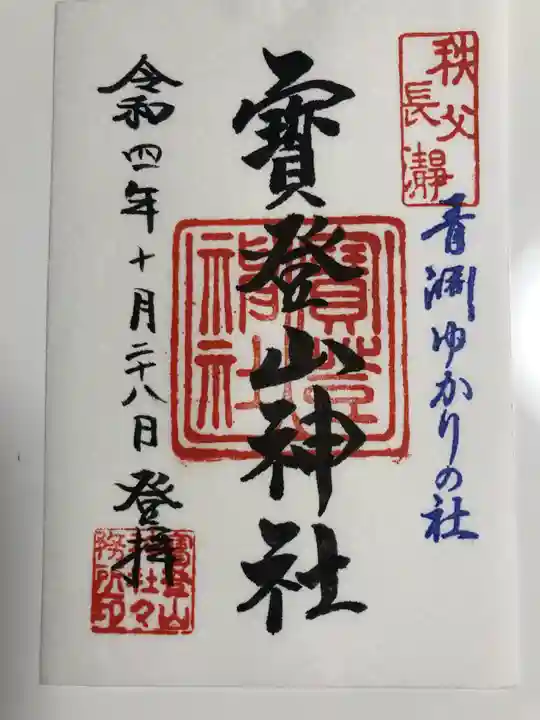 秩父
長瀞
青淵ゆかりの社
寳登山神社
寳登山
神社
令和四年十月二十八日
登拝
寳登山
社々
務所印